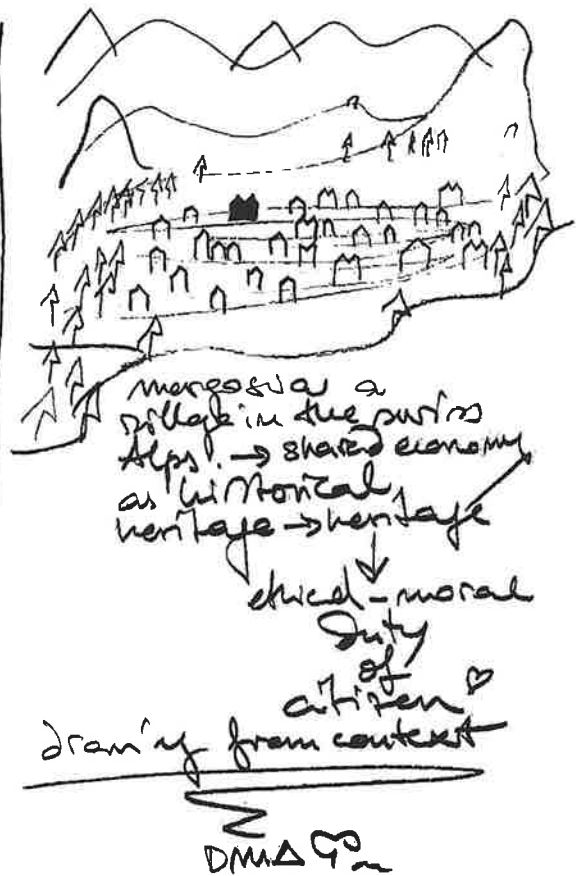 a
village in the swiss
Alps! → shared economy
as historical
heritage → heritage
↓
ethical-moral
duty
of
citizen ♡
from context
DMA